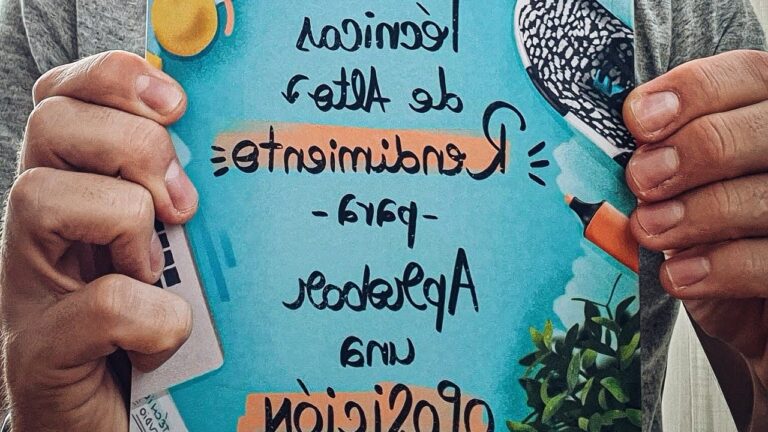 Técnicas
de Alto
Rendimiento
- para -
Aprobar
una
oposición